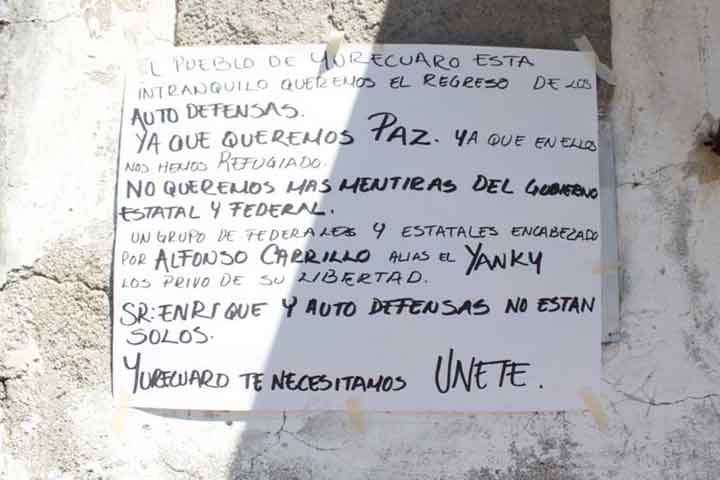 EL PUEBLO DE YURECUARO ESTA
INTRANQUILO QUEREMOS EL REGRESO DE LOS
AUTO DEFENSAS.
YA QUE QUEREMOS PAZ. YA QUE EN ELLOS
NOS HEMOS REFUGIADO.
NO QUEREMOS MAS MENTIRAS DEL GOBIERNO
ESTATAL Y FEDERAL.
UN GRUPO DE FEDERALES Y ESTATALES ENCABEZADO
POR ALFONSO CARRILLO ALIAS EL YANKY
LOS PRIVO DE SU LIBERTAD.
SR: ENRIQUE Y AUTO DEFENSAS NO ESTAN
SOLOS.
YURECUARO TE NECESITAMOS UNETE.